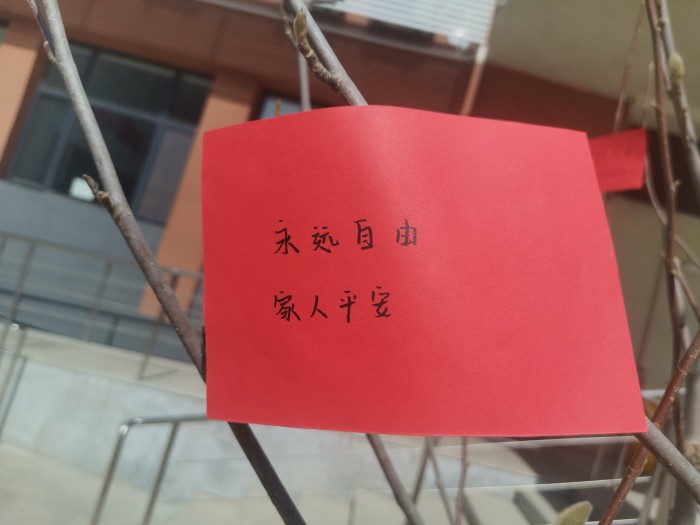 永远自由
家人平安